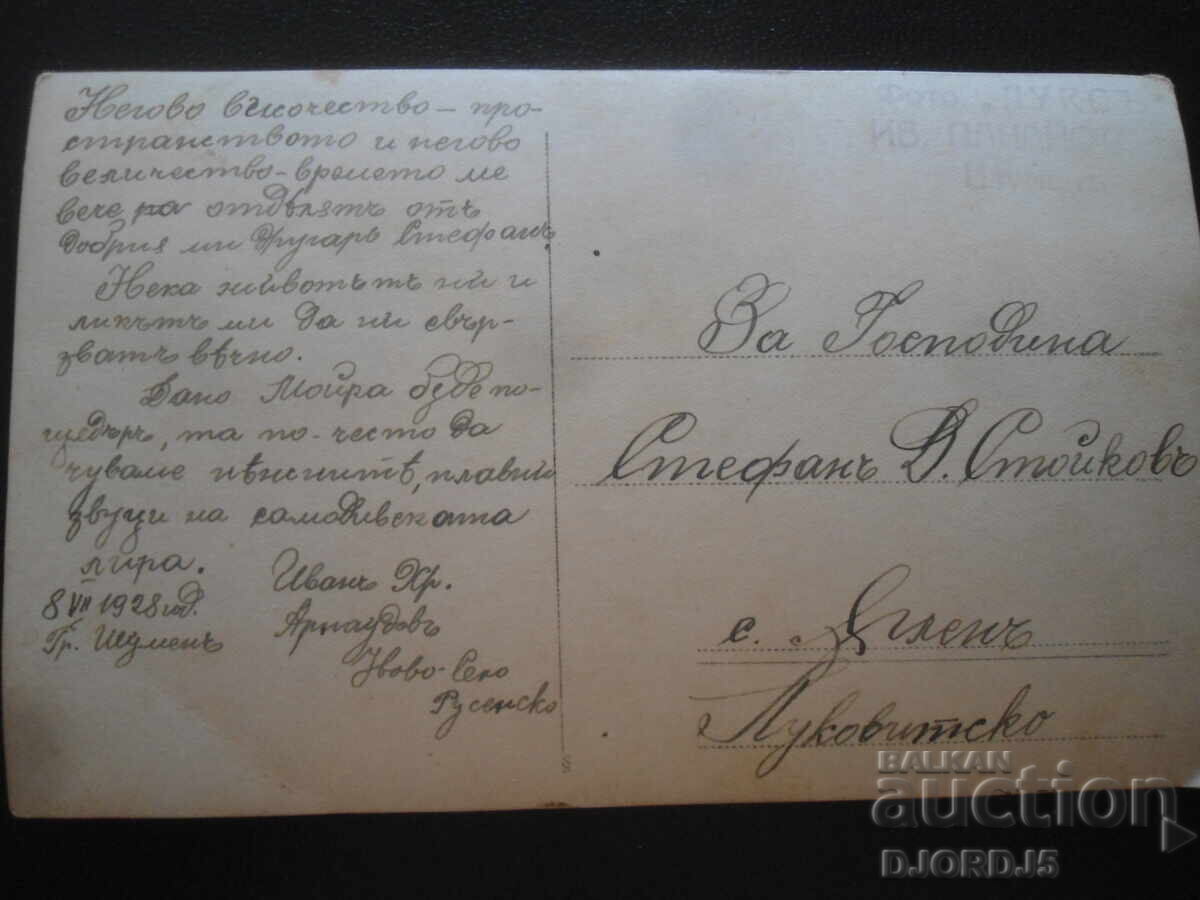 Негово височество – про-
странството и негово
величество – времето ме
вече ра отдѣлятъ отъ
добрия ми другарь Стефанъ.
Нека животътъ ни и
ликътъ ми да ни свър-
зватъ вѣчно.
Дано Мойра бѫде по-
щедъръ, та по-често да
чуваме пѣснитѣ, плавни
звуци на самодивската
лира.
8 VII 1928 год.
Гр. Шуменъ
Иванъ Хр.
Арнаудовъ
Ново-Село
Русенско
За Господина
Стефанъ В. Стойковъ
с. Ягленъ
Луковитско
BALKAN
auction
DJORDJ5